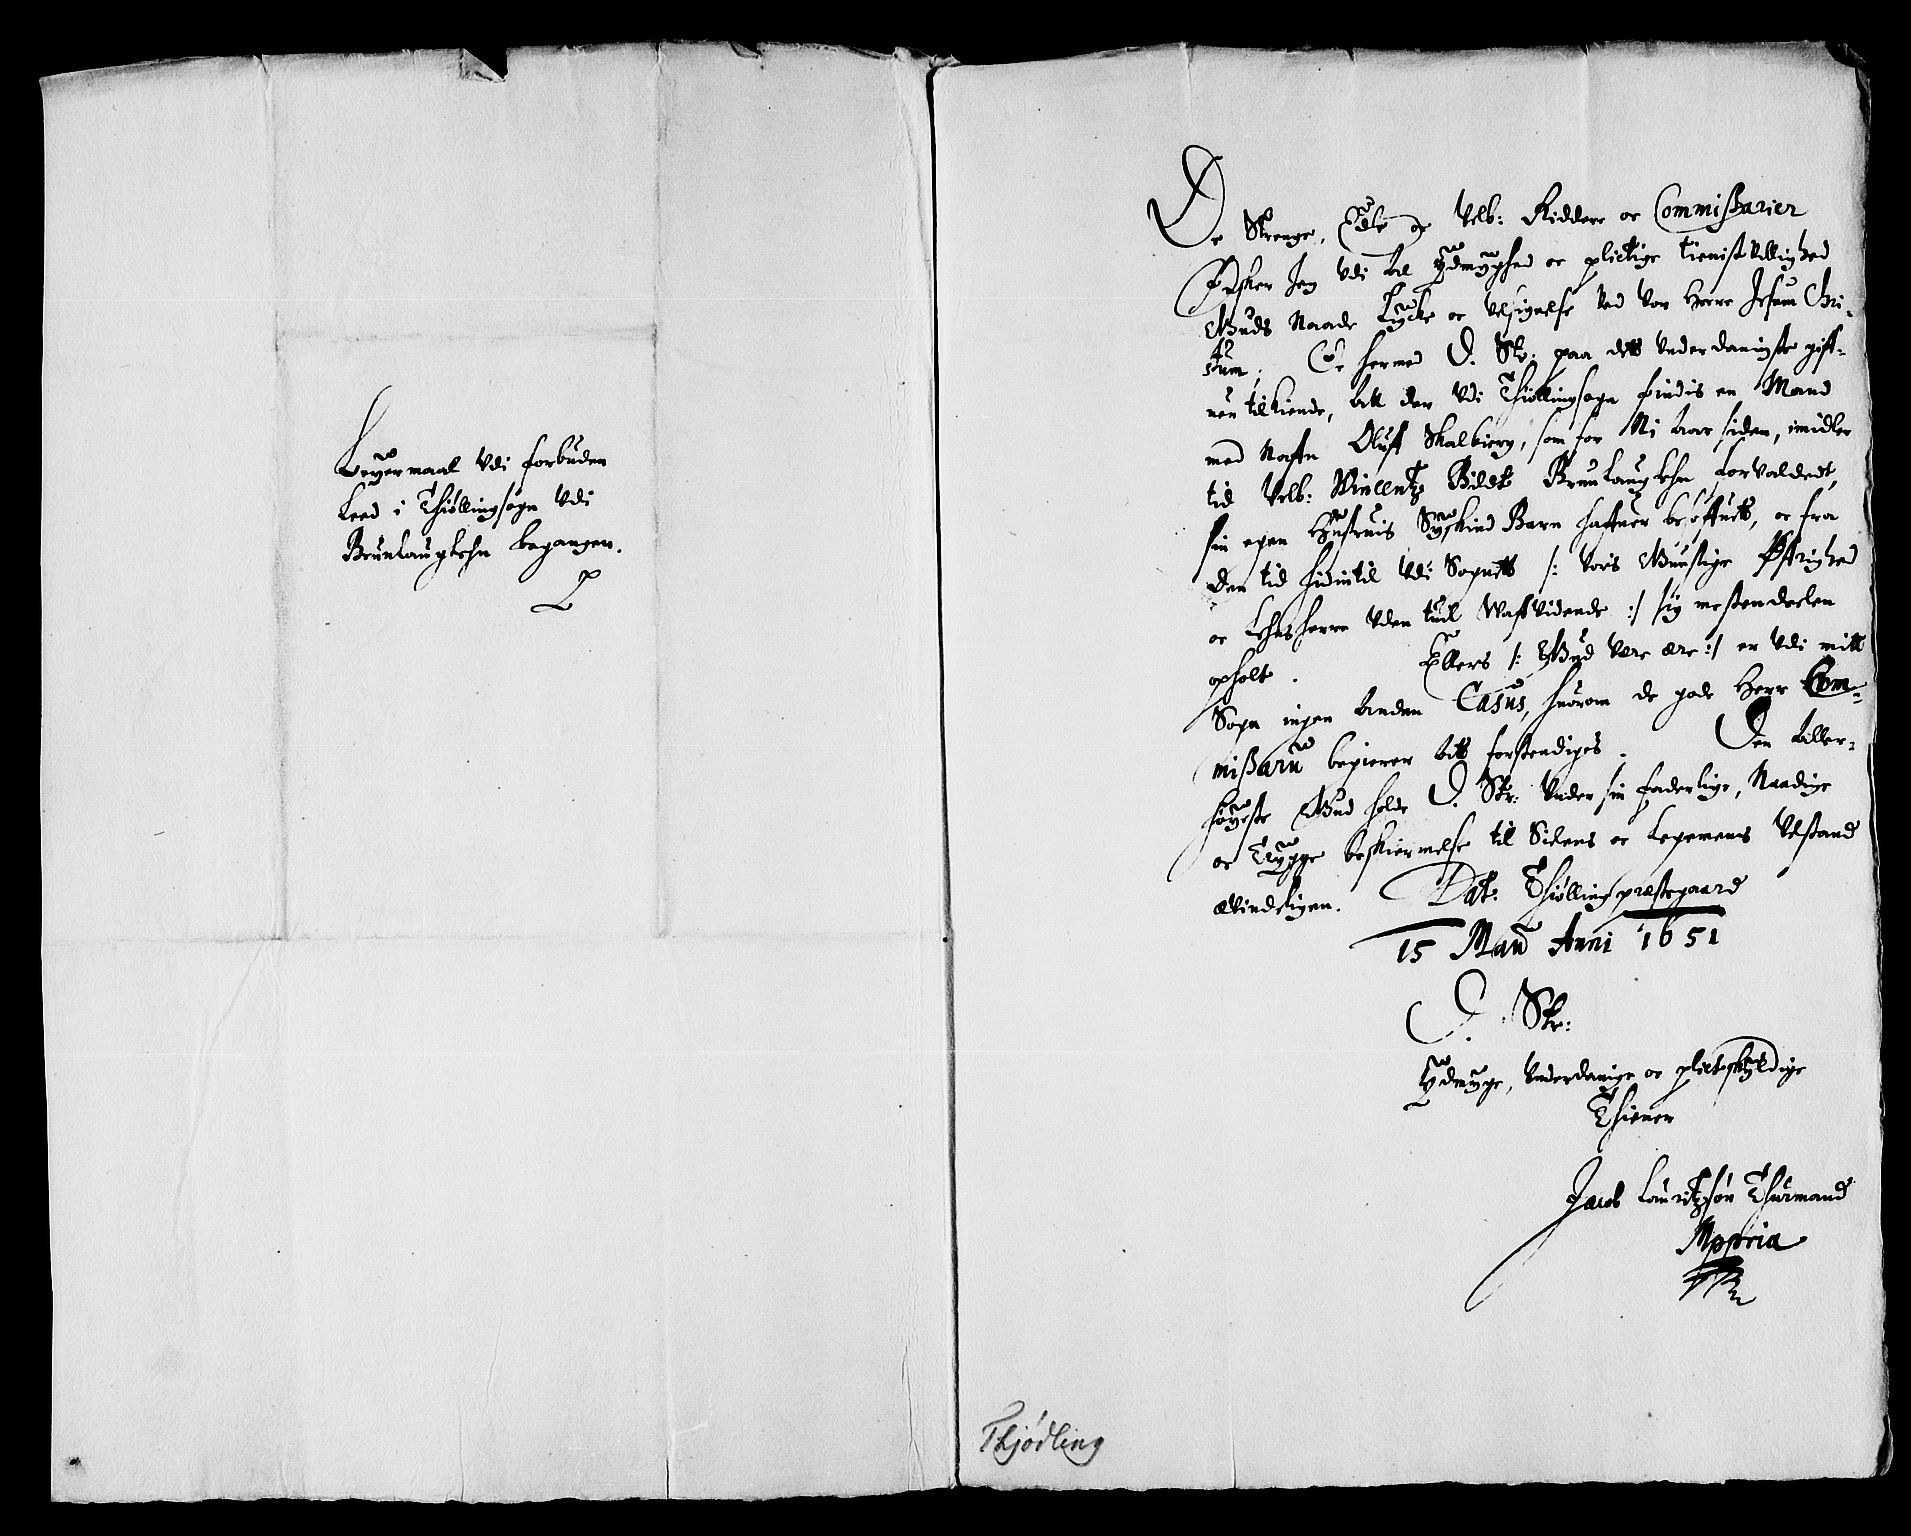 Leyermaal Udi forbuden
Leed i Thiøllingsogn Udi
Brunlauglehn begangen.
De Strenge, Edle oc Velb: Riddere oc Commißarier
Ønsker Jeg Udi al Ydmyghed oc plictige tienistvillighed
Guds Naade Lycke oc Velsignelse Ved Vor Herre Jesum Chri-
stum. Oc hermed D. Str: paa dett Underdanigste giff-
uen tilkiende, att der Udi Thiøllingsogn findis en Mand
med Naffn Oluff Skalbierg, som for Ni Aar siden, imidler
tid Velb: Vincentz Bildt Brunlauglehn forvaldede,
sin egen Hustruis Syskind Barn haffuer besøffuet, oc fra
den tid hidintil Udi Sognett /: Vors Gunstige Øfrighed
oc Lehnsherre Uden tuil Uaffvidende :/ sig mestendeelen
opholt. Ellers /: Gud være ære :/ er Udi mitt
Sogn ingen Anden Casus, huorom de gode Herr Com-
mißarii begierer att forstendiges. Den Aller-
høyeste Gud holde D. Str: Under sin faderlige, Naadige
oc Trygge beskiermelse til Sielens oc Legemens Velstand
ævindeligen. Dat: Thiølling præstegaard
15 Maii Anni 1651
D. Str:
Ydmyge, Underdanige oc plictskyldige
Thiener
Jacob Lauritzsøn Thurmand
Mppria
Thjødling